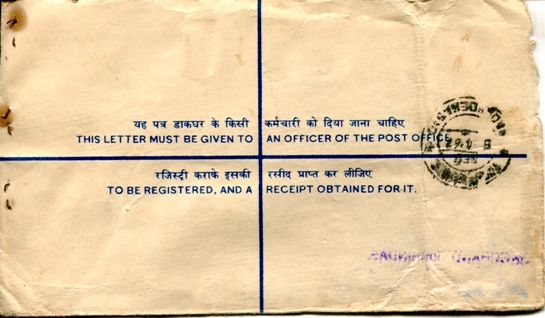 यह पत्र डाकघर के किसी कर्मचारी को दिया जाना चाहिए
THIS LETTER MUST BE GIVEN TO AN OFFICER OF THE POST OFFICE
रजिस्ट्री कराके इसकी रसीद प्राप्त कर लीजिए
TO BE REGISTERED, AND A RECEIPT OBTAINED FOR IT.